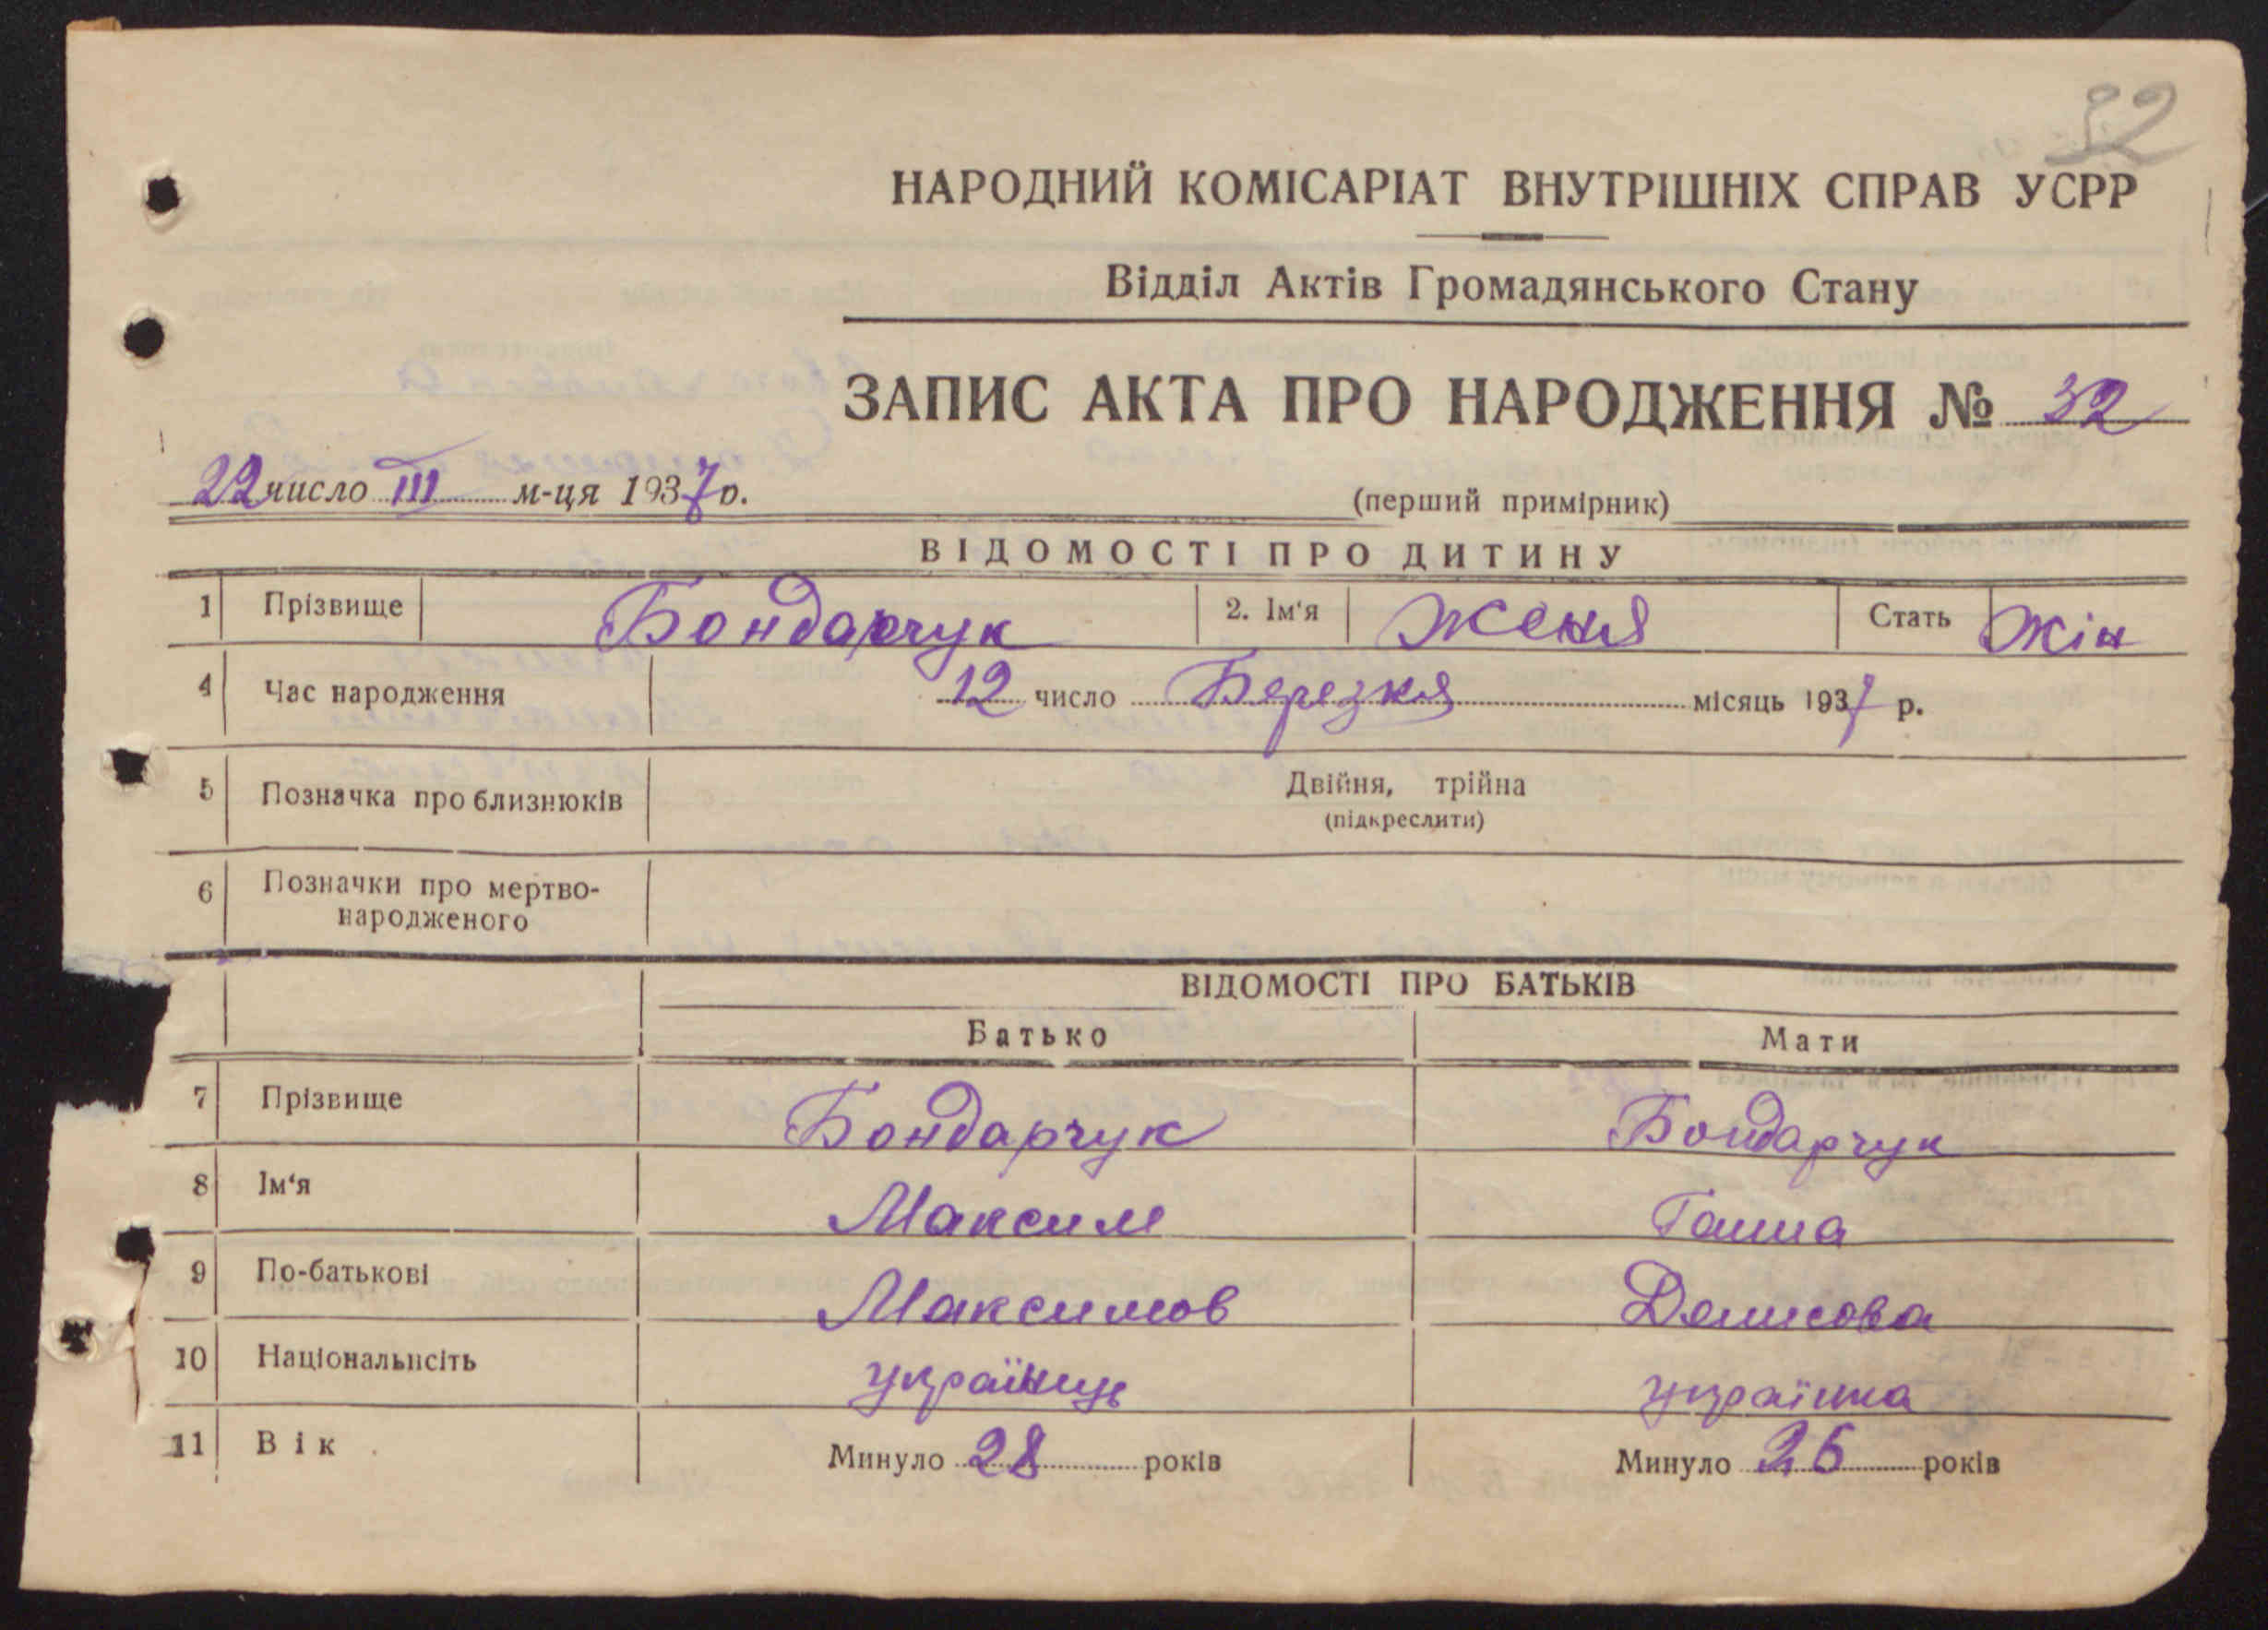 32
НАРОДНИЙ КОМІСАРІАТ ВНУТРІШНІХ СПРАВ УСРР
Відділ Актів Громадянського Стану
ЗАПИС АКТА ПРО НАРОДЖЕННЯ № 32
22 число III м-ця 1937 р.
(перший примірник)
ВІДОМОСТІ ПРО ДИТИНУ
1 Прізвище Бондарчук 2. Ім'я Женя Стать Жін
4 Час народження 12 число Березня місяць 1937 р.
5 Позначка про близнюків Двійня, трійна
(підкреслити)
6 Позначки про мертво-
народженого
ВІДОМОСТІ ПРО БАТЬКІВ
Батько Мати
7 Прізвище Бондарчук Бондарчук
8 Ім'я Максим Ганна
9 По-батькові Максимов Денисова
10 Національнсіть українць українка
11 Вік Минуло 28 років Минуло 26 років